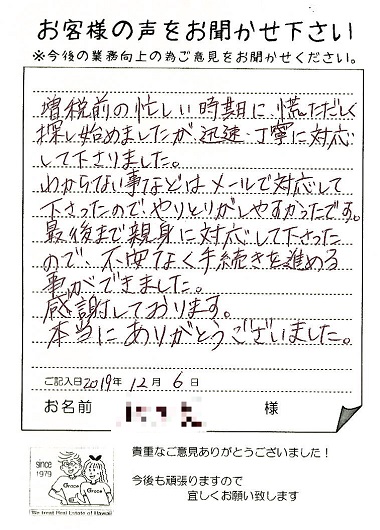 お客様の声をお聞かせ下さい
※今後の業務向上の為ご意見をお聞かせください。
増税前の忙しい時期に慌ただしく
探し始めましたが迅速・丁寧に対応
して下さりました。
わからない事などはメールで対応して
下さったので、やりとりがしやすかったです。
最後まで親身に対応して下さった
ので、不安なく手続きを進める
事ができました。
感謝しております。
本当にありがとうございました。
ご記入日2019年12月6日
お名前 様
since
1979
Grace
Grace
We treat Real Estate of Hawaii
貴重なご意見ありがとうございました！
今後も頑張りますので
宜しくお願い致します